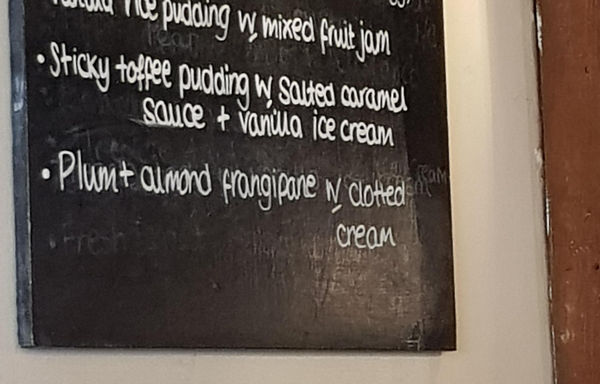 rice pudding w/ mixed fruit jam
• Sticky toffee pudding w/ salted caramel
sauce + vanilla ice cream
• Plum + almond frangipane w/ clotted
cream
• Fresh